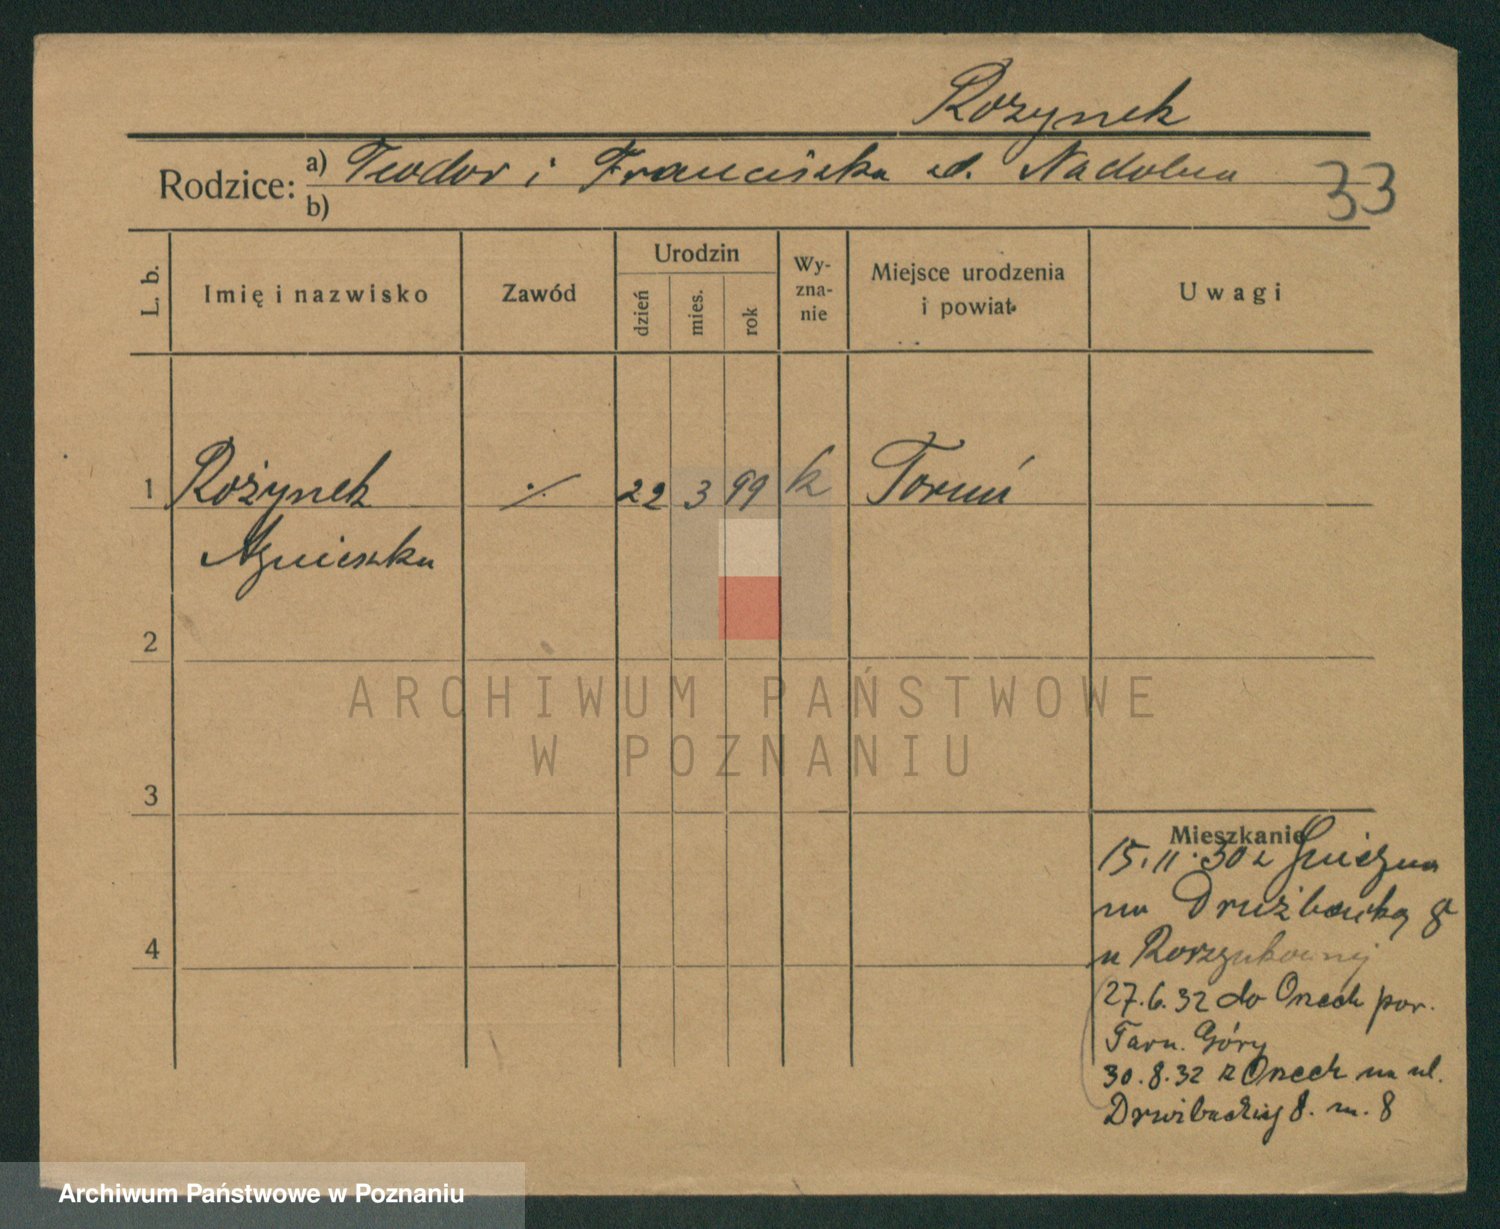 Rożynek
Rodzice: a) Teodor i Franciszka d. Nadolna
b)
33
L. b.
Imię i nazwisko
Zawód
Urodzin
dzień
mies.
rok
Wy-
zna-
nie
Miejsce urodzenia
i powiat
Uwagi
1 Rożynek ./. 22 3 99 k Toruń
Agnieszka
2
ARCHIWUM PAŃSTWOWE
W POZNANIU
3
Mieszkanie
15.11.30 z Gniezna
na Drużbacką 8
u
4
27.6.32 do Orzech pow.
Tarn. Góry
30.8.32 z Orzech na ul.
8. m. 8
Archiwum Państwowe w Poznaniu